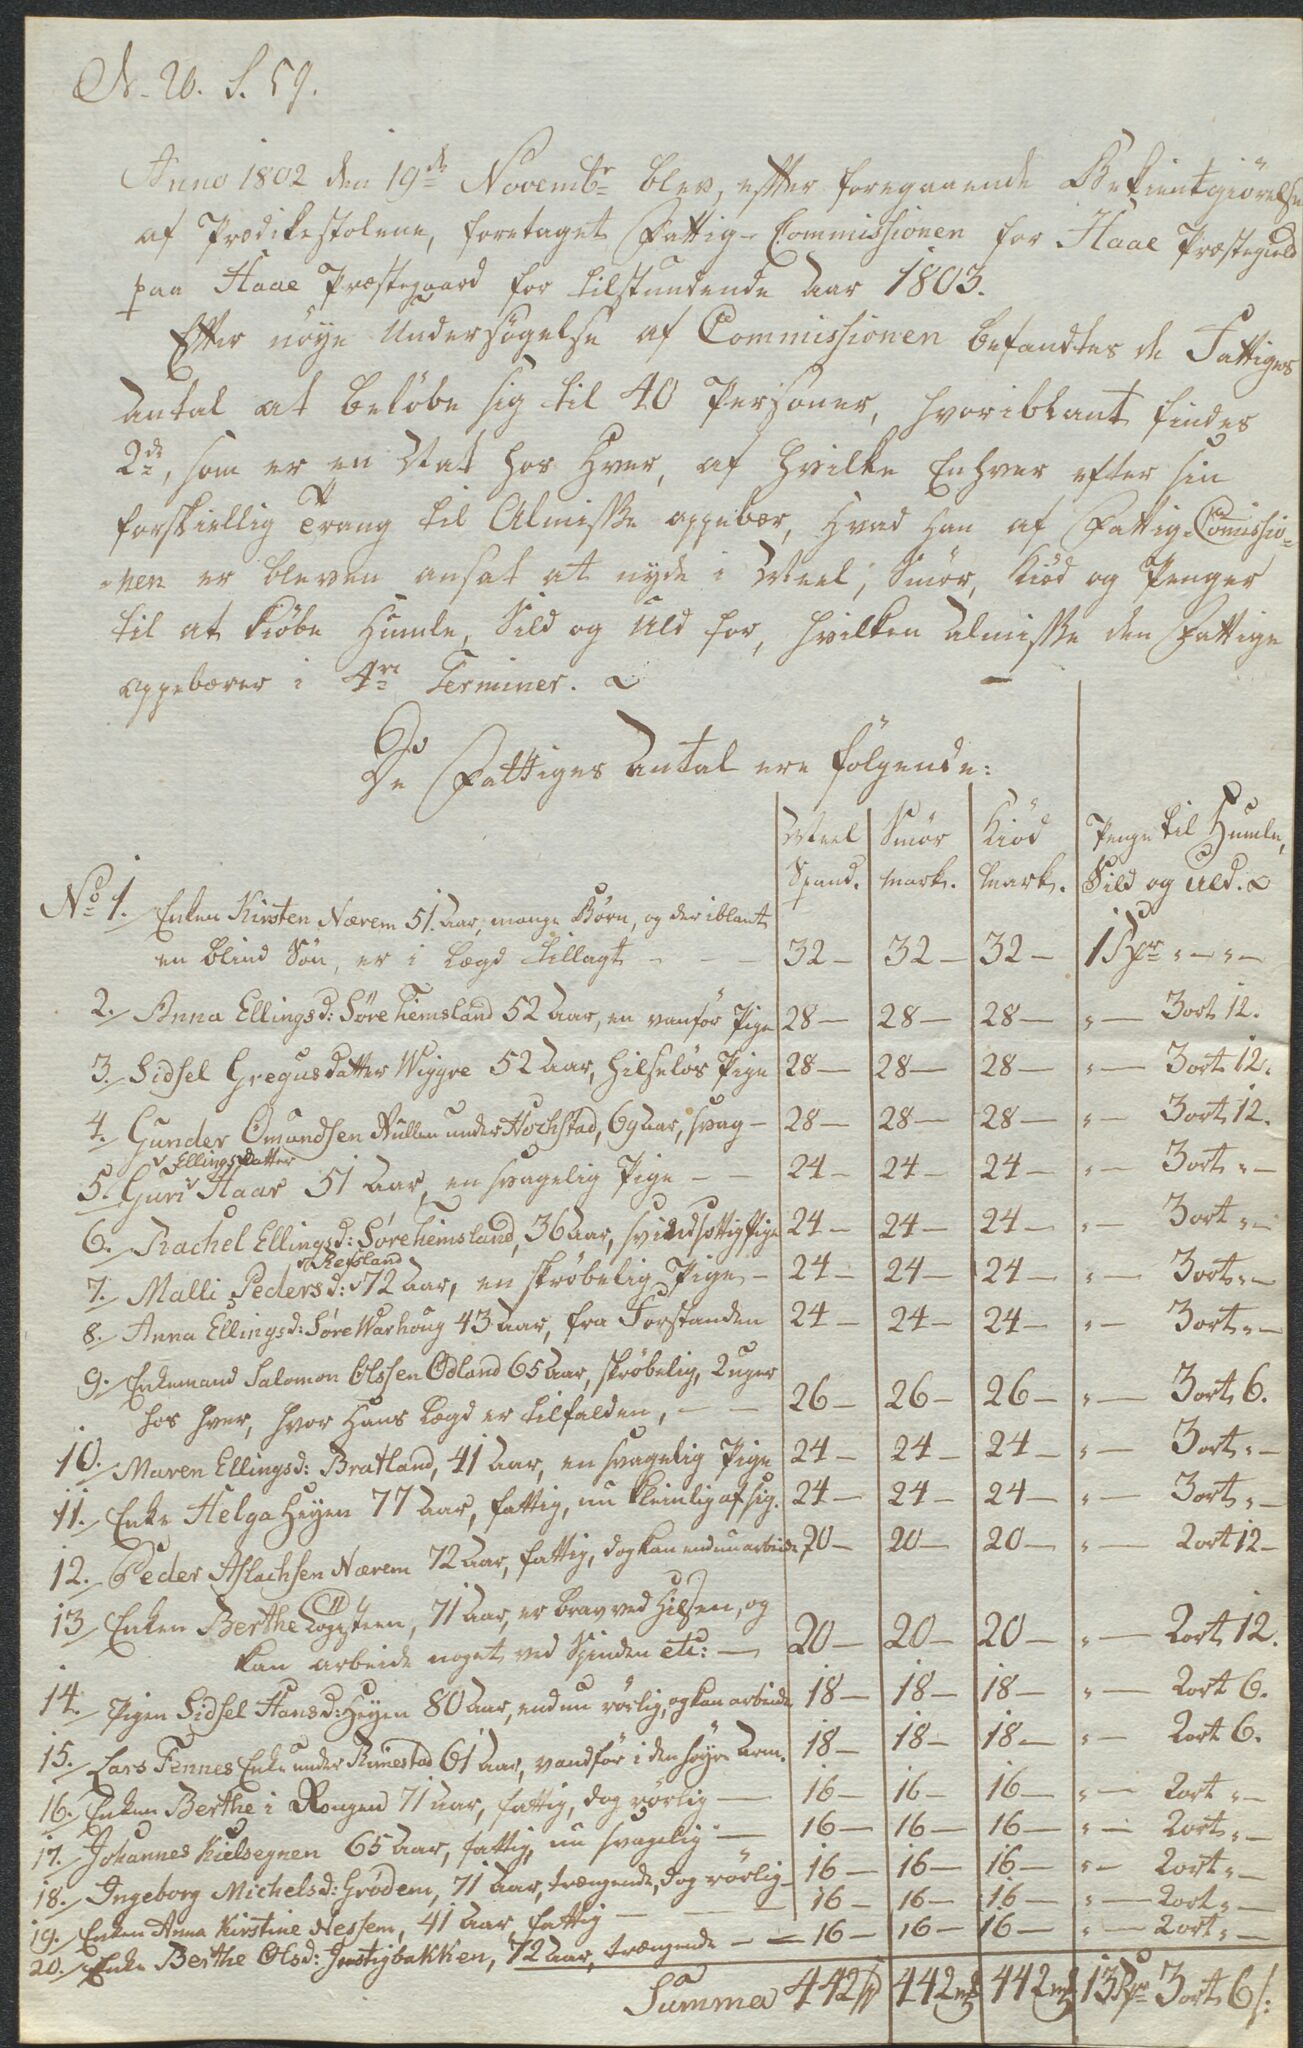 N. 20. S. 59.
Anno 1802 den 19de Novembr blev, efter foregaaende Bekientgiörelse
af Prædikestolene, foretaget Fattig-Commissionen for Haae Præstegield
paa Haae Præstegaard for tilstundende Aar 1803.
Efter nöye Undersögelse af Commissionen befandtes de Fattiges
Antal at belöbe sig til 40 Personer, hvoriblant findes
2de, som er en Nat hos Hver, af hvilke Enhver efter sin
forskiellig Trang til Almisse oppebær, hvad Han af Fattig-Commissio-
-nen er bleven ansat at nyde i Meel, Smör, Kiöd og Penger
til at kiöbe Humle, Sild og Uld for, hvilken Almisse den Fattige
oppebærer i 4re Terminer.
De Fattiges Antal ere fölgende:
Meel Smör Kiöd Penge til Humle,
Spand. Mark. Mark. Sild og Uld.
No 1. Enken Kirsten Nærem 51 Aar, mange Börn, og deriblant
en blind Sön, er i Lægd tillagt - - - 32 - 32 - 32 - 1 Rdr " - " -
2. Anna Ellingsd: Söre Tiemsland 52 Aar, en vanför Pige 28 - 28 - 28 - " - 3 ort 12.
3. Sidsel Gregusdatter Wiggre 52 Aar, Hilselös Pige 28 - 28 - 28 - " - 3 ort 12.
4. Gunder Omundsen Nullen under Hochstad, 69 Aar, svag - 28 - 28 - 28 - " - 3 ort 12.
v Ellingsdatter
5. Guri v Haar 51 Aar, en svagelig Pige - - 24 - 24 - 24 - " - 3 ort " -
6. Rachel Ellingsd: Söre Tiemsland, 36 Aar, svindsottig Pige 24 - 24 - 24 - " - 3 ort " -
v Refsland
7. Malli Pedersd: v 72 Aar, en skröbelig Pige - 24 - 24 - 24 - " - 3 ort " -
8. Anna Ellingsd: Söre Warhoug 43 Aar, fra Forstanden 24 - 24 - 24 - " - 3 ort " -
9. Enkemand Salomon Olssen Ødland 65 Aar, skröbelig, 2 uger
hos hver, hvor Hans Lægd er tilfalden, - - 26 - 26 - 26 - " - 3 ort 6.
10. Maren Ellingsd: Bratland, 41 Aar, en svagelig Pige 24 - 24 - 24 - " - 3 ort " -
11. Enke Helga Heyen 77 Aar, fattig, nu kleinlig af sig. 24 - 24 - 24 - " - 3 ort " -
12. Peder Aslachsen Nærem 72 Aar, fattig, dog kan endnu arbeide, 20 - 20 - 20 - " - 2 ort 12 -
13 Enken Berthe, 71 Aar, er brav ved Hilsen, og
kan arbeide noget ved Spinden etc: - 20 - 20 - 20 - " - 2 ort 12.
14. Pigen Sidsel Hansd: Heyen 80 Aar, endnu rörlig, og kan arbeide 18 - 18 - 18 - " - 2 ort 6.
15. Lars Tennes Enke under Rimestad 61 Aar, vandför i den höyre Arm. 18 - 18 - 18 - " - 2 ort 6.
16. Enken Berthe i Rongen 71 Aar, fattig, dog rörlig - 16 - 16 - 16 - " - 2 ort " -
17. Johannes Kielsegnen 65 Aar, fattig, nu svagelig - 16 - 16 - 16 - " - 2 ort " -
18. Ingeborg Michelsd: Grödem, 71 Aar, trængende, dog rörlig - 16 - 16 - 16 - " - 2 ort " -
19. Enken Anna Kirstine Nessem, 41 Aar, fattig - - - 16 - 16 - 16 - " - 2 ort " -
20. Enke Berthe Olsd: Jnstigbakken, 72 Aar, trængende - - 16 - 16 - 16 - " - 2 ort " -
Summa 442 Sp 442 mk 442 mk 13 Rdr 3 ort 6 s: